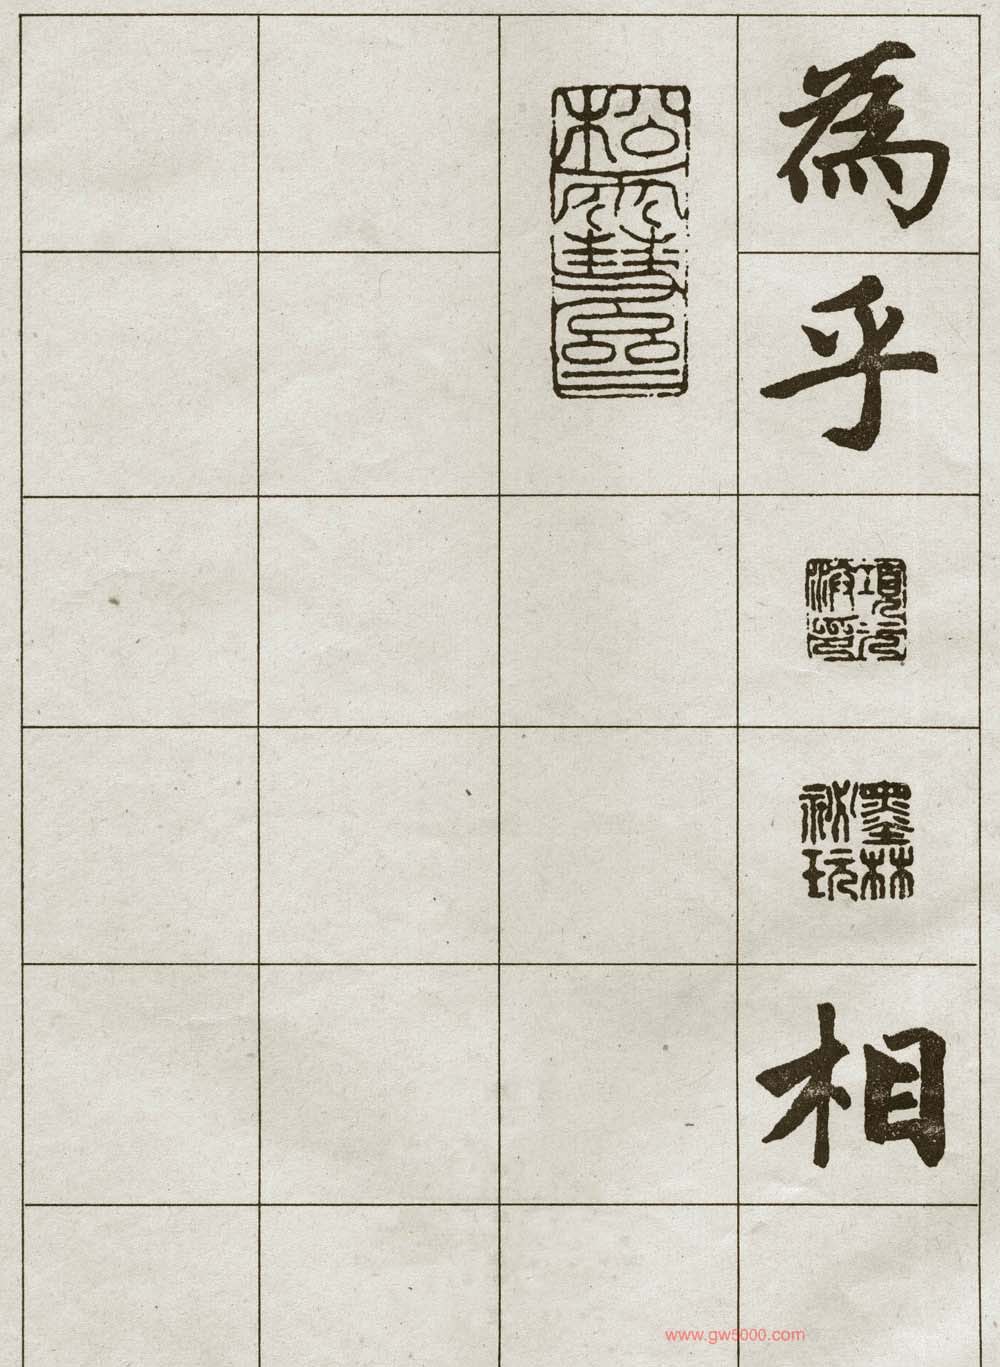 為乎
項元汴印
墨林祕玩
相
松雪
www.gw5000.com